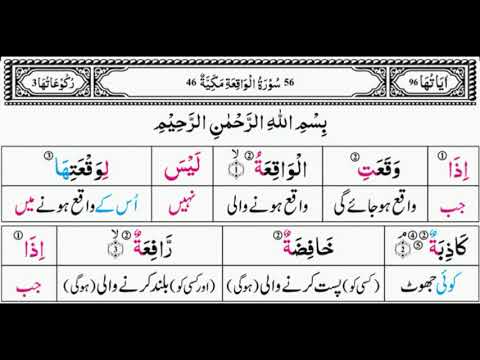 اٰيَاتُهَا 96 56 سُوْرَةُ الْوَاقِعَةِ مَكِّيَّةٌ 46 رُكُوْعَاتُهَا 3
بِسْمِ اللّٰهِ الرَّحْمٰنِ الرَّحِيْمِ
اِذَا ① وَقَعَتِ ② الْوَاقِعَةُ ② ۙ ① لَيْسَ لِوَقْعَتِهَا ③
جب واقع ہو جائے گی واقع ہونے والی نہیں اُس کے واقع ہونے میں
كَاذِبَةٌ ② ④ ⑤ ۘ ② خَافِضَةٌ ② رَّافِعَةٌ ② ۙ ③ اِذَا ①
کوئی جھوٹ (کسی کو) پست کرنے والی (ہوگی) (اور کسی کو) بلند کرنے والی (ہوگی) جب